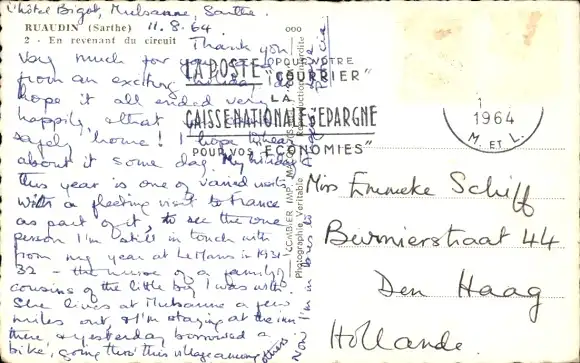 L'hôtel Bigot, Mulsanne, Sarthe.
RUAUDIN (Sarthe) 11.8.64.
2 - En revenant du circuit
Thank you
very much for your
from an exciting holiday, I do
hope it all ended very
happily, & that
safely home! I hope to hear
about it some day. My holiday
this year is one of varied visits
with a fleeting visit to France
as part of it, to see the one
person I'm still in touch with
from my year at Le Mans in 1931-
32 - the nurse of a family,
cousins of the little boy I was with.
She lives at Mulsanne a few
miles out, & I'm staying at the inn
there, & yesterday borrowed a
bike, going thro' this village among others
Now I'm in
LA POSTE
POUR VOTRE
"COURRIER"
LA
CAISSE NATIONALE D'EPARGNE
POUR VOS "ECONOMIES"
1964
M. ET L.
COMBIER IMP. MACON
Photographie Véritable
Reproduction interdite
Miss Emmeke Schiff
Burnierstraat 44
Den Haag
Hollande.